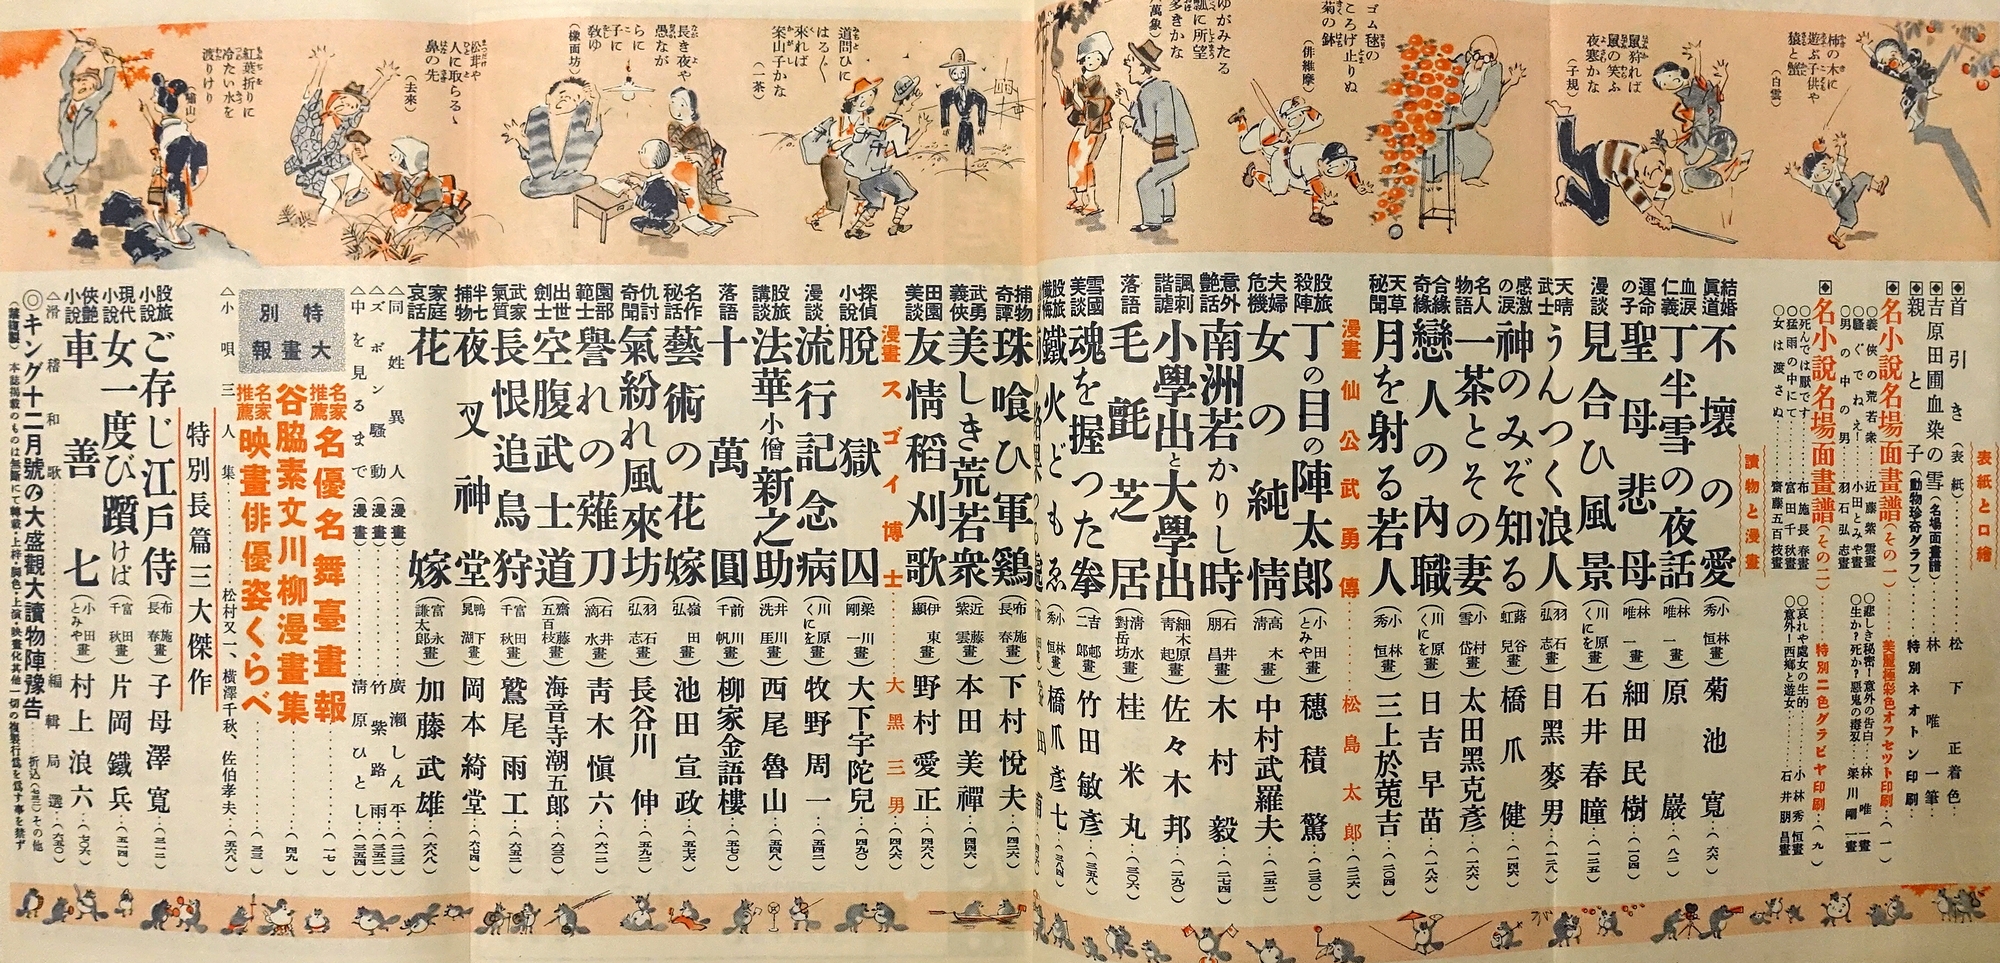 柿の木に
遊ぶ子供や
猿と蟹
(白雲)
鼠狩れば
鼠の笑ふ
夜寒かな
(子規)
ゴム毬の
ころげ止りぬ
菊の鉢
(俳維摩)
ゆがみたる
瓢に所望
多きかな
道問ひに
はるく
来れば
案山子かな
(一茶)
長き夜や
愚なが
らに
子に
敎ゆ
(橡面坊)
松茸や
人に取らるゝ
鼻の先
(去來)
紅葉折りに
冷たい水を
渡りけり
表紙と口繪
◆首引き(表紙)…松下正着色
◆吉原田圃血染の雪(名場面畫譜)…林唯一筆
◆親と子(動物珍奇グラフ)…特別ネオトン印刷
◆名小說名場面畫譜(その一)…美麗極彩色オフセツト印刷…(一)
○義俠の荒若衆…近藤紫雲畫
○騷ぐでねえ!…小田とみや畫
○男の中の男…羽石弘志畫
○悲しき秘密!意外の告白…林唯一畫
○生か?死か?惡鬼の毒双…梁川剛一畫
◆名小說名場面畫譜(その二)…特別二色グラビヤ印刷…(九)
○死んでは厭です…布施長春畫
○猛雨の中にて…富田千秋畫
○女は渡さぬ…齋藤五百枝畫
○哀れや處女の生的…小林秀恒畫
○意外!西鄕と遊女…石井朋昌畫
讀物と漫畫
結婚眞道 不壞の愛(小林秀恒畫)菊池寬…(六六)
血淚仁義 丁半雪の夜話(林唯一畫)原巖…(八二)
運命の子 聖母悲母(林唯一畫)細田民樹…(一〇四)
漫談 見合ひ風景(川原くにを畫)石井春瞳…(一二五)
天晴武士 うんつく浪人(羽石弘志畫)目黑麥男…(一二八)
感激の淚 神のみぞ知る(蕗谷虹兒畫)橋爪健…(一四六)
名人物語 一茶とその妻(小村雪岱畫)太田黑克彥…(一六六)
合緣奇緣 戀人の內職(川原くにを畫)日吉早苗…(一八六)
天草秘聞 月を射る若人(小林秀恒畫)三上於菟吉…(二〇四)
漫畫 仙公武勇傳…松島太郎…(二二六)
股旅殺陣 丁の目の陣太郎(小田とみや畫)穗積驚…(二三〇)
夫婦危機 女の純情(高木清畫)中村武羅夫…(二五二)
意外艷話 南洲若かりし時(石井朋昌畫)木村毅…(二七四)
諷刺諧謔 小學出と大學出(細木原靑起畫)佐々木邦…(二九〇)
落語 毛氈芝居(淸水對岳坊畫)桂米丸…(三〇六)
雪國美談 魂を握つた拳(吉邨二郎畫)竹田敏彥…(三五八)
股旅懺悔 鐵火どもゑ(小林秀恒畫)橋爪彥七…(三八四)
捕物奇譚 珠喰ひ軍鷄(布施長春畫)下村悅夫…(四二六)
武勇義俠 美しき荒若衆(近藤紫雲畫)本田美禪…(四四六)
田園美談 友情稻刈歌(伊東顯畫)野村愛正…(四六八)
漫畫 スゴイ博士…大黑三男…(四八六)
探偵小說 脫獄囚(梁川剛一畫)大下宇陀兒…(四九〇)
漫談 流行記念病(川原くにを畫)牧野周一…(五四二)
股旅講談 法華小僧新之助(井川洗厓畫)西尾魯山…(五四八)
落語 十萬圓(前川千帆畫)柳家金語樓…(五七〇)
名作秘話 藝術の花嫁(嶺田弘畫)池田宣政…(五七六)
仇討奇聞 氣紛れ風來坊(羽石弘志畫)長谷川伸…(五九二)
園部範士 譽れの薙刀(石井滴水畫)靑木愼六…(六一二)
出世劍士 空腹武士道(齋藤五百枝畫)海音寺潮五郎…(六三〇)
武家氣質 長恨追鳥狩(富田千秋畫)鷲尾雨工…(六五二)
半七捕物 夜叉神堂(鴨下晁湖畫)岡本綺堂…(六七四)
家庭哀話 花嫁(富永謙太郎畫)加藤武雄…(六八八)
△同姓異人(漫畫)…廣瀨しん平…(三三三)
△ズボン騷動(漫畫)…竹紫路雨…(三五三)
△中を見るまで(漫畫)…淸原ひとし…(三五四)
特別大畫報
名家推薦 名優名舞臺畫報…(一七)
谷脇素文川柳漫畫集…(四九)
名家推薦 映畫俳優姿くらべ…(三三)
△小唄三人集…松村又一、橫澤千秋、佐伯孝夫…(五六八)
特別長篇三大傑作
股旅小說 ご存じ江戶侍(布施長春畫)子母澤寬…(三一二)
現代小說 女一度び躓けば(富田千秋畫)片岡鐵兵…(五一四)
俠艷小說 車善七(小田とみや畫)村上浪六…(七〇六)
△滑稽和歌…編輯局選…(六五〇)
◎キング十二月號の大盛觀大讀物陣豫告…折込(七三)その他
(禁複製)本誌揭載のものは無斷にて轉載・上梓・脚色・上演・映畫化其他一切の複製行爲を爲す事を禁ず